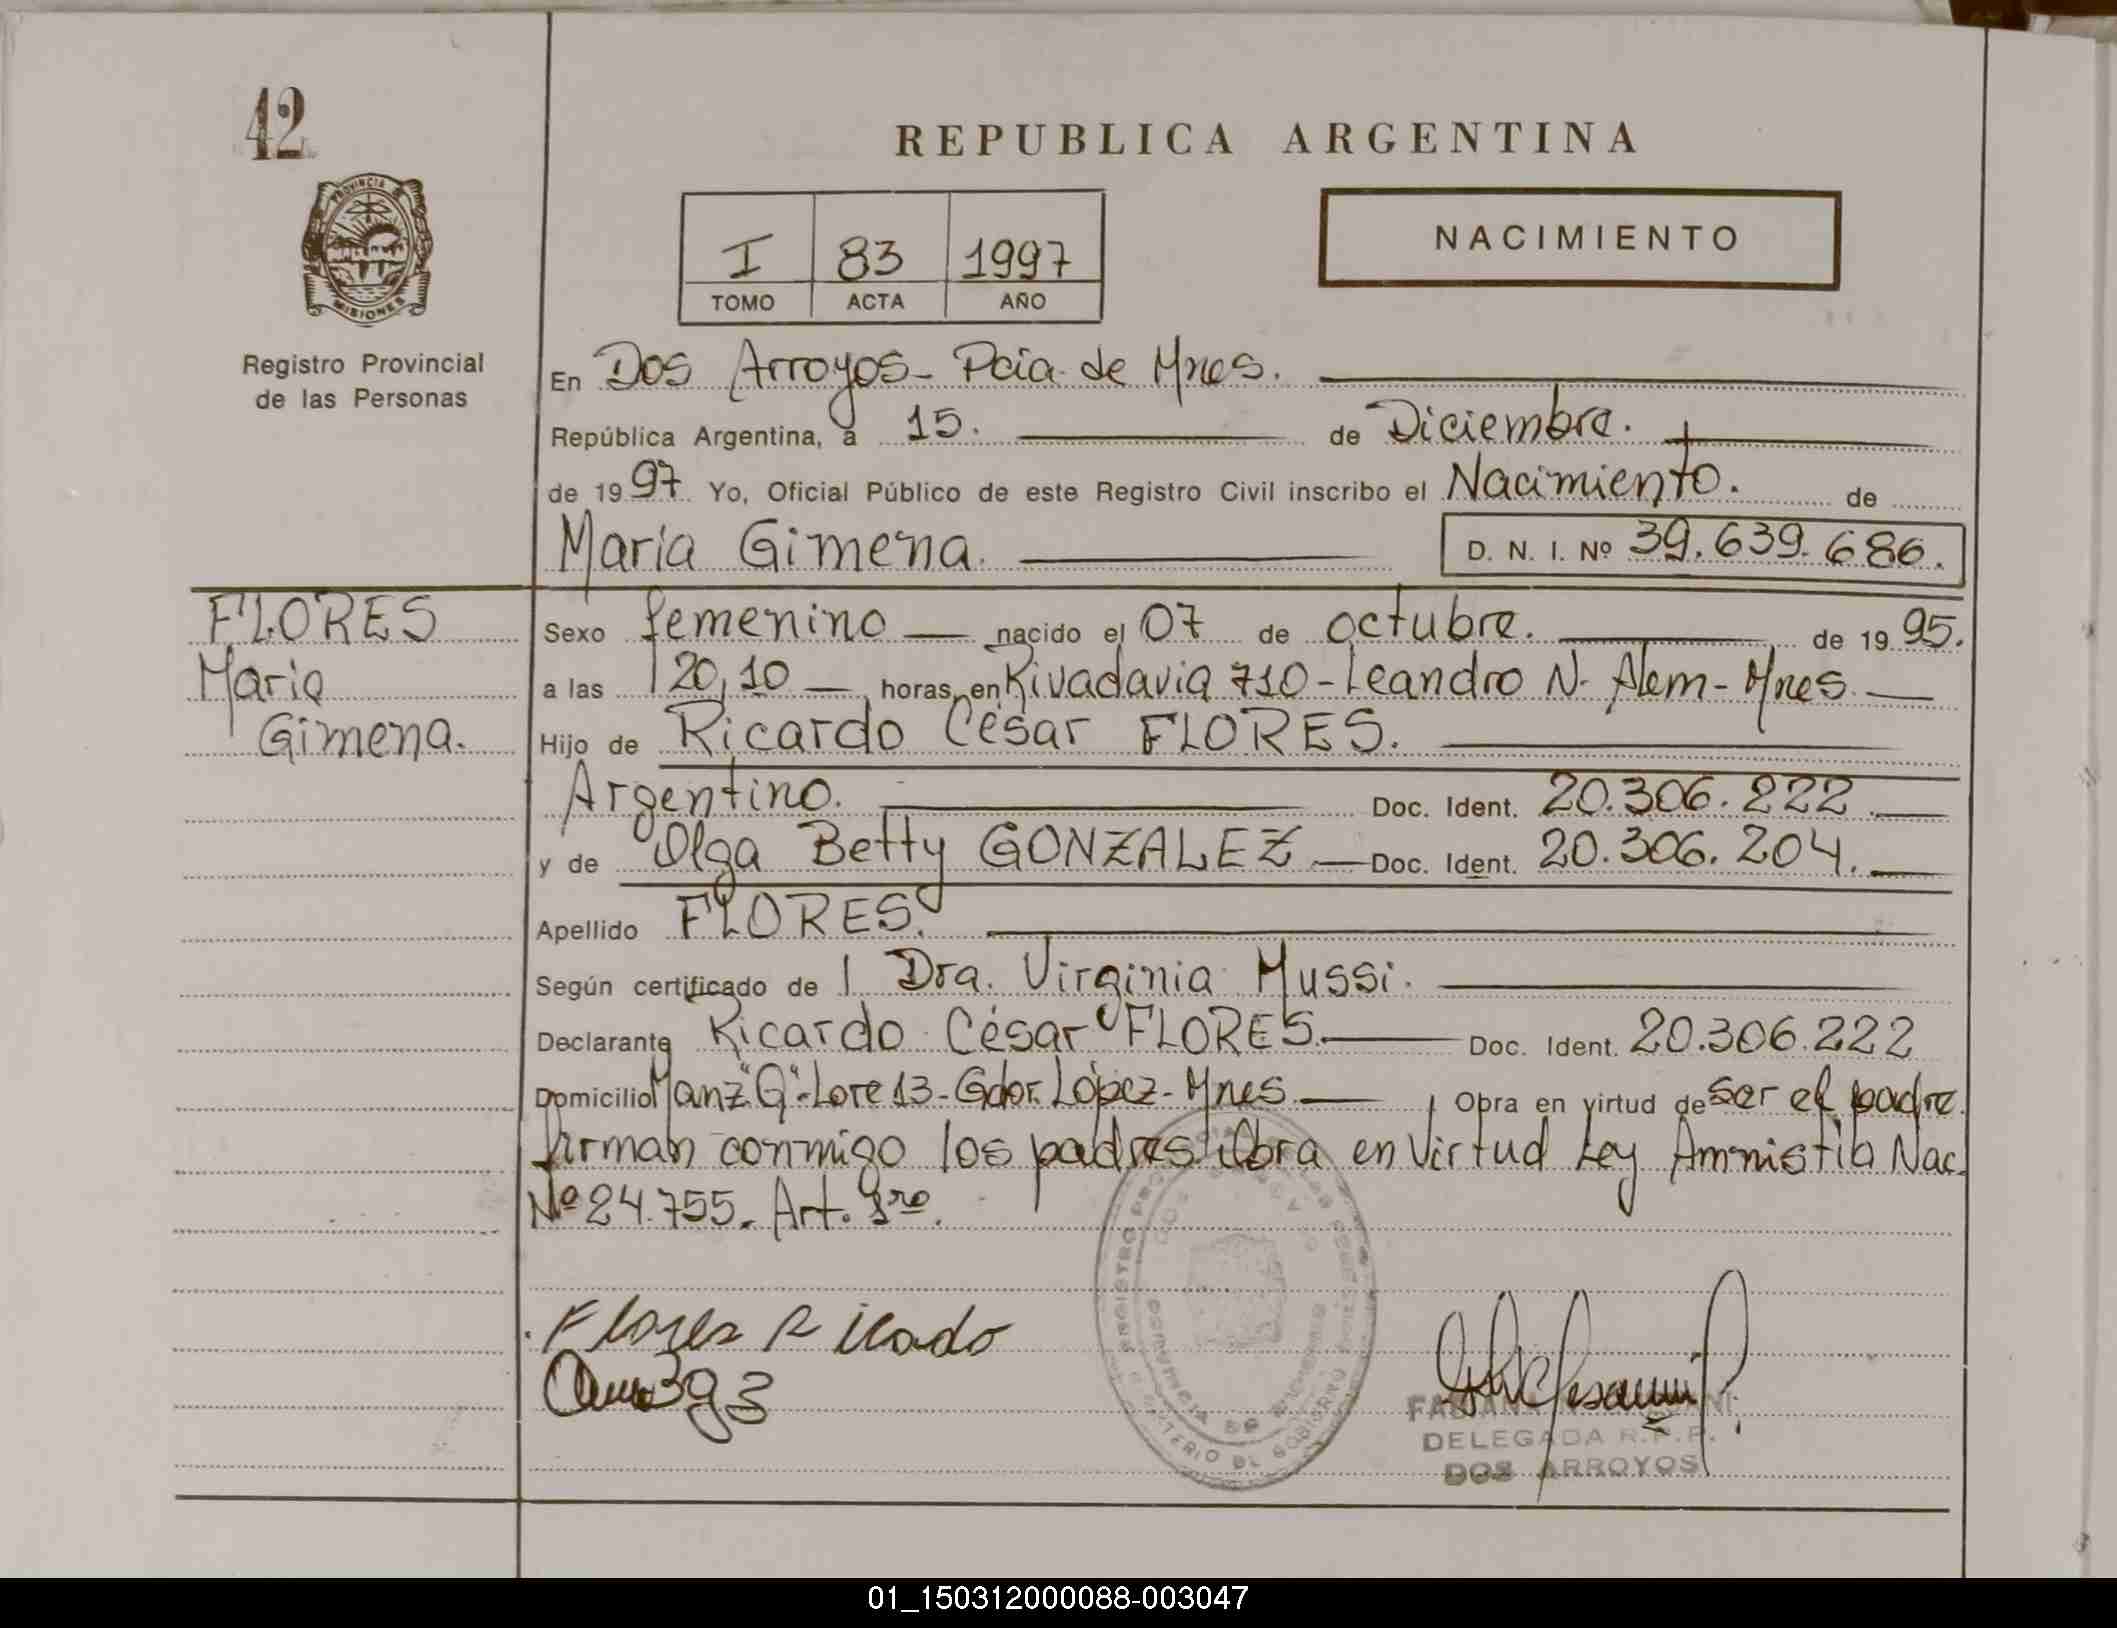 42
PROVINCIA DE
MISIONES
Registro Provincial
de las Personas
REPUBLICA ARGENTINA
I 83 1997
TOMO ACTA AÑO
NACIMIENTO
En Dos Arroyos- Pcia. de Mnes.
República Argentina, a 15. de Diciembre.
de 1997 Yo, Oficial Público de este Registro Civil inscribo el Nacimiento. de
María Gimena. D. N. I. Nº 39.639.686.
FLORES
María
Gimena.
Sexo femenino nacido el 07 de octubre. de 1995.
a las 20,10 horas, en Rivadavia 710-Leandro N. Alem-Mnes.
Hijo de Ricardo César FLORES.
Argentino. Doc. Ident. 20.306.222
y de Olga Betty GONZALEZ Doc. Ident. 20.306.204.
Apellido FLORES.
Según certificado de Dra. Virginia Mussi.
Declarante Ricardo César FLORES. Doc. Ident. 20.306.222
Domicilio Manz"G"-Lote 13-Gdor. López-Mnes. Obra en virtud de ser el padre
firman conmigo los padres. Obra en Virtud Ley Amnistía Nac.
Nº 24.755. Art. 1ro.
Flores Ricado
DELEGADA R.P.P.
DOS ARROYOS
01_150312000088-003047